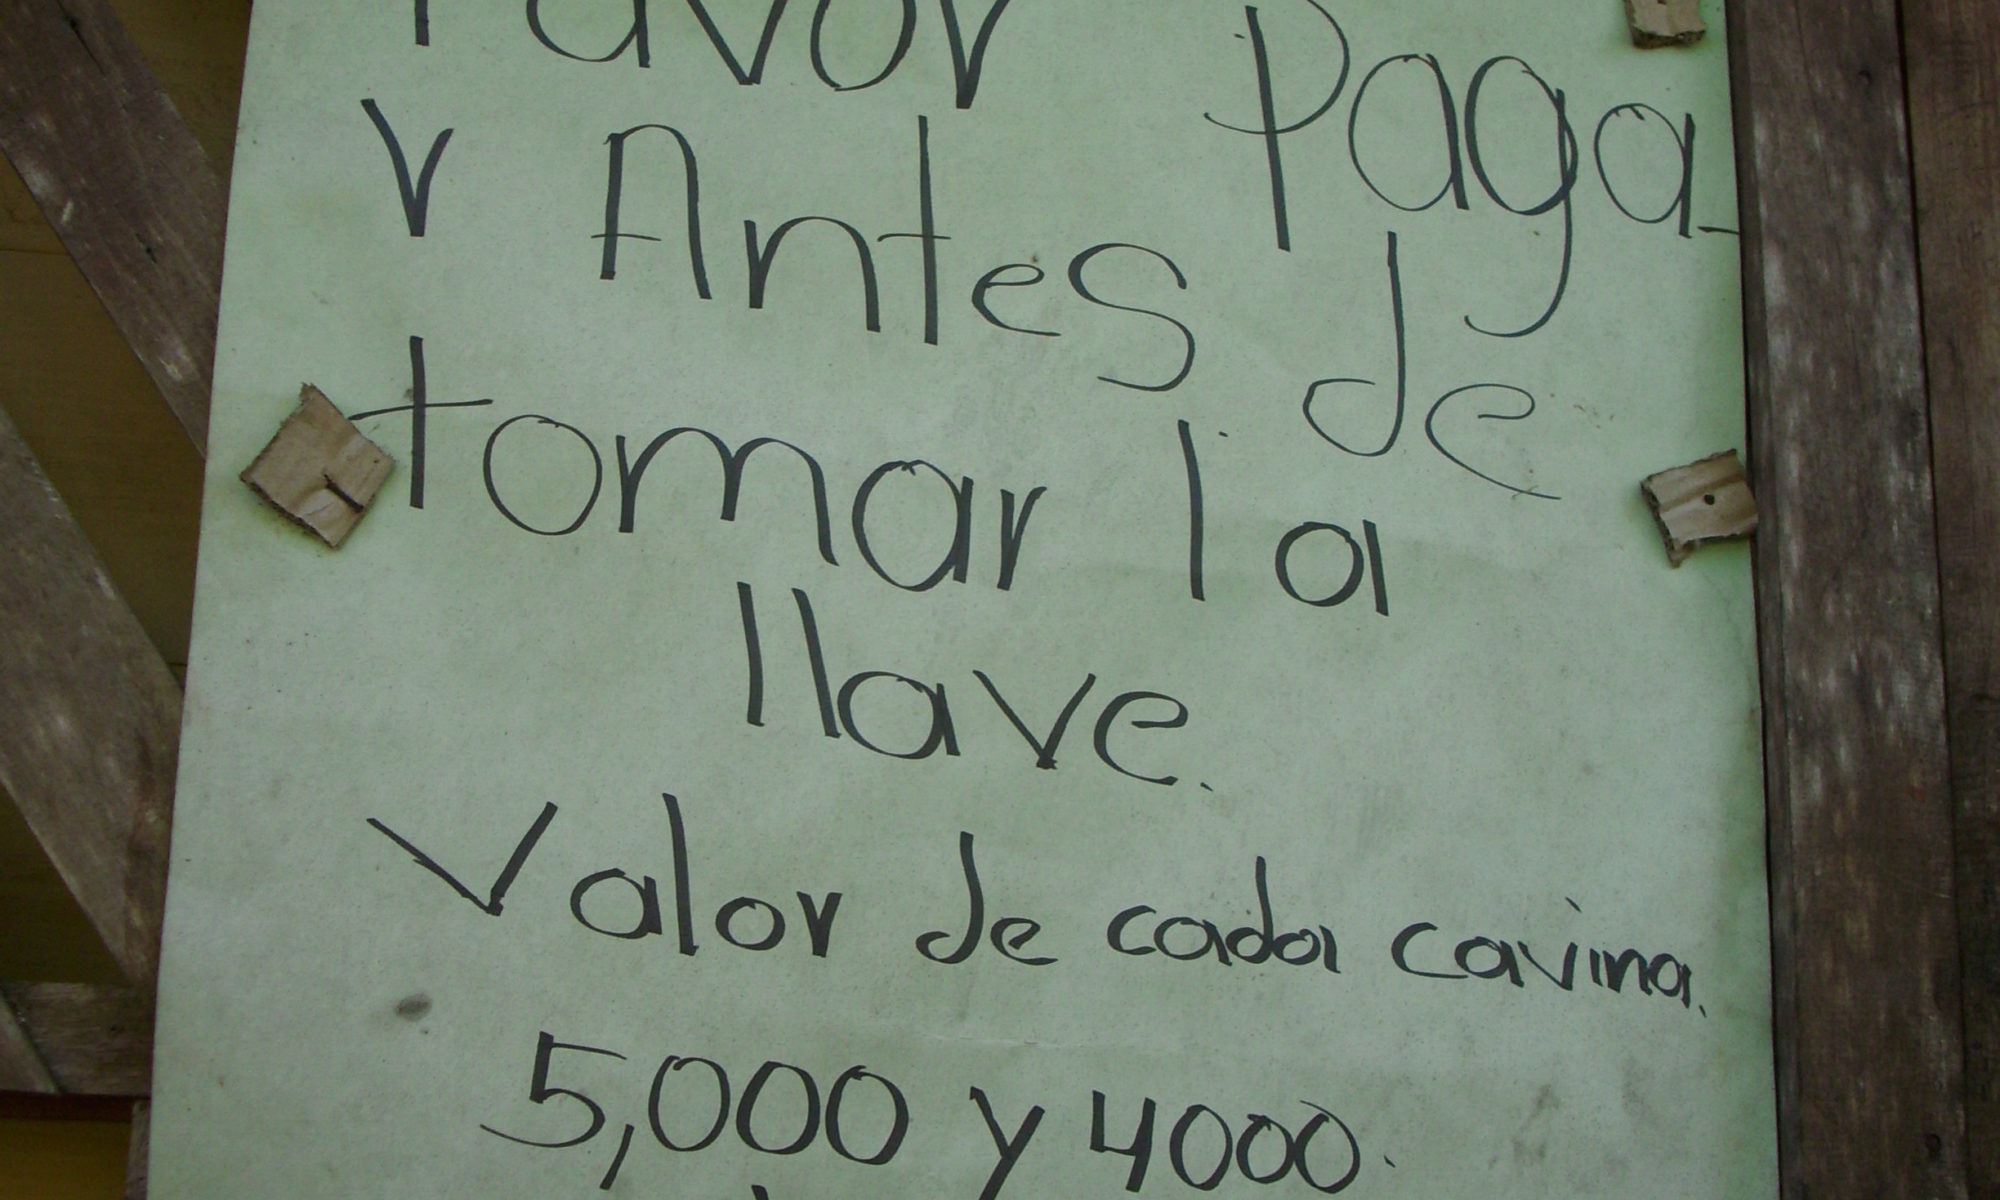 Favor Paga-
r Antes de
tomar la
llave.
Valor de cada cavina.
5,000 y 4000.